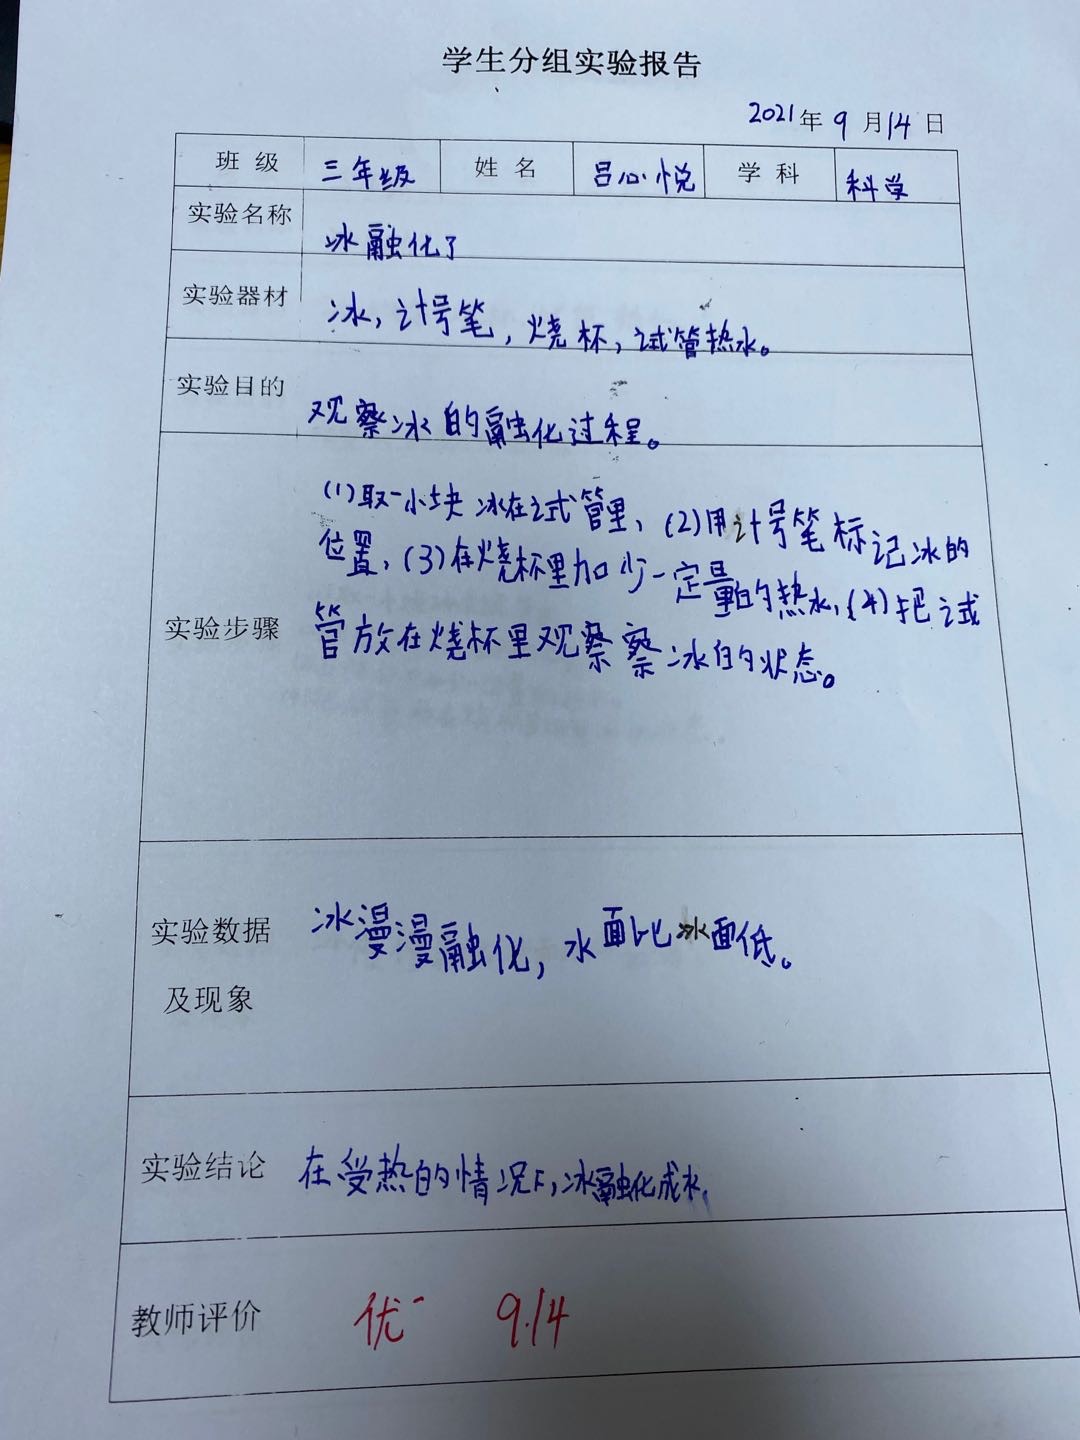 学生分组实验报告
2021年9月14日
班级 三年级 姓名 吕心悦 学科 科学
实验名称 冰融化了
实验器材 冰,计号笔,烧杯,试管热水。
实验目的 观察冰的融化过程。
实验步骤
(1)取一小块冰在试管里,(2)用计号笔标记冰的
位置,(3)在烧杯里加少一定量的热水,(4)把试
管放在烧杯里观察察冰的状态。
实验数据
及现象
冰漫漫融化,水面比冰面低。
实验结论 在受热的情况下,冰融化成水,
教师评价 优- 9.14